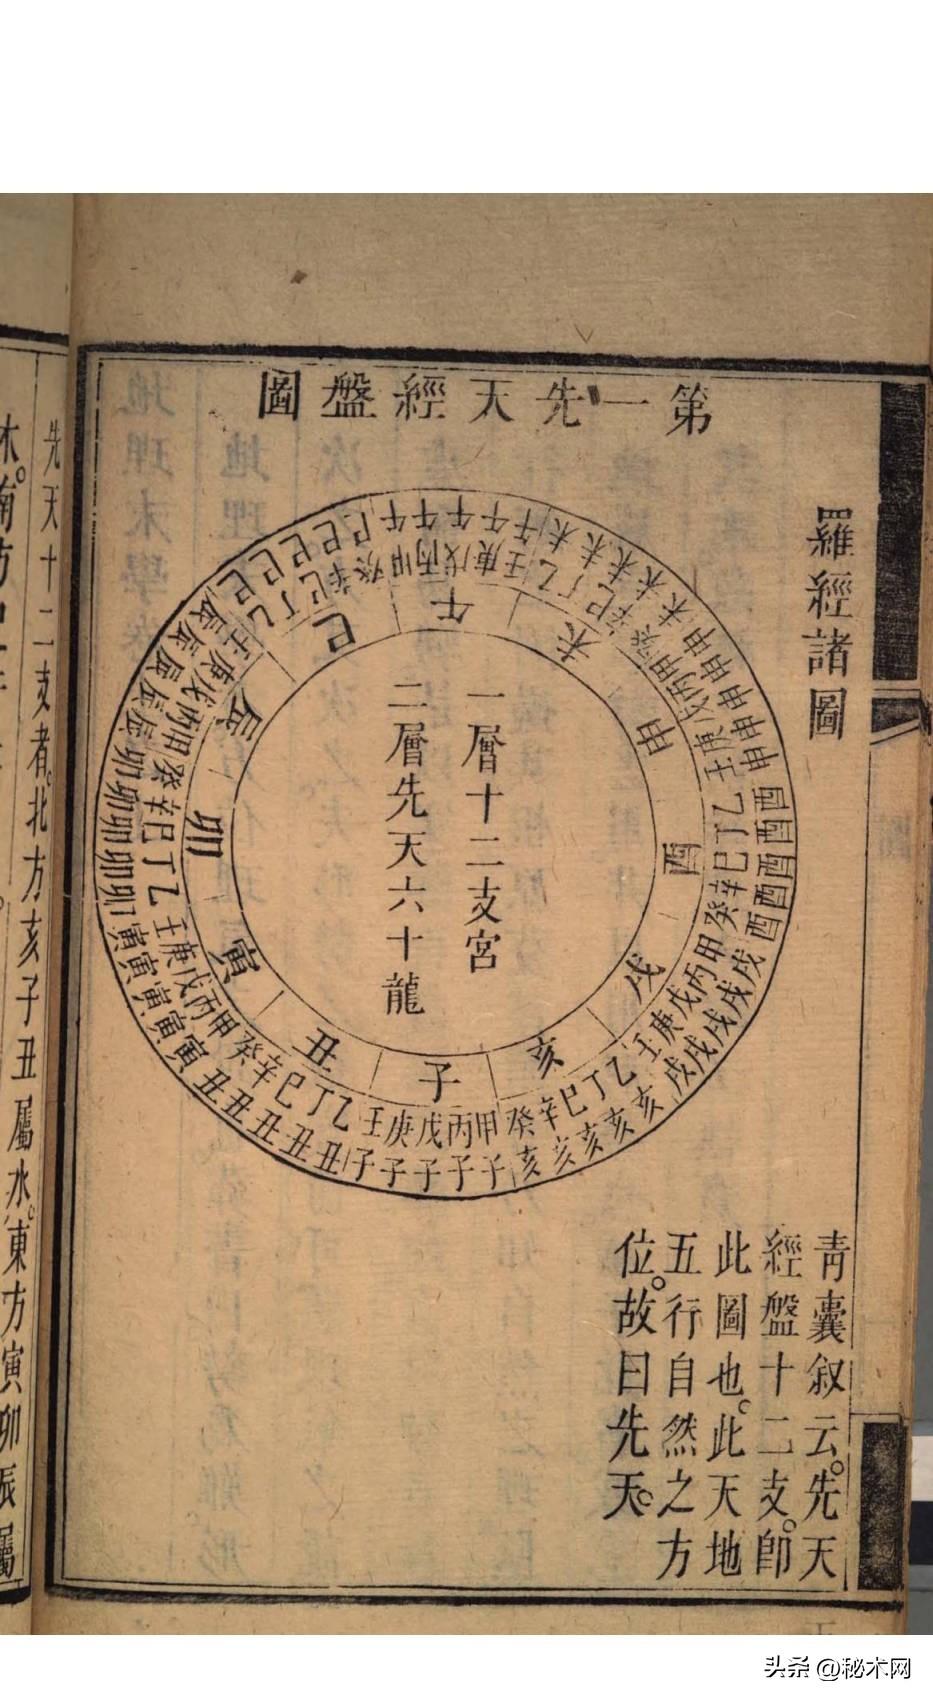 羅經諸圖
第一先天經盤圖
一層十二支宮
二層先天六十龍
子丑寅卯辰巳午未申酉戌亥
甲子丙子戊子庚子壬子
乙丑丁丑巳丑辛丑癸丑
甲寅丙寅戊寅庚寅壬寅
乙卯丁卯巳卯辛卯癸卯
甲辰丙辰戊辰庚辰壬辰
乙巳丁巳巳巳辛巳癸巳
甲午丙午戊午庚午壬午
乙未丁未巳未辛未癸未
甲申丙申戊申庚申壬申
乙酉丁酉巳酉辛酉癸酉
甲戌丙戌戊戌庚戌壬戌
乙亥丁亥巳亥辛亥癸亥
青囊叙云。先天
經盤十二支。卽
此圖也。此天地
五行自然之方
位。故曰先天。
先天十二支者。北方亥子丑屬水。東方寅卯辰屬
木。南方
头条 @秘术网